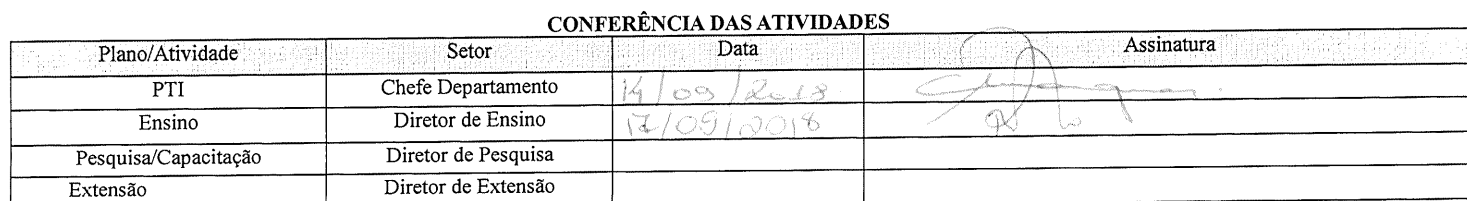 CONFERÊNCIA DAS ATIVIDADES
Plano/Atividade Setor Data Assinatura
PTI Chefe Departamento 14/09/2018
Ensino Diretor de Ensino 17/09/2018
Pesquisa/Capacitação Diretor de Pesquisa
Extensão Diretor de Extensão